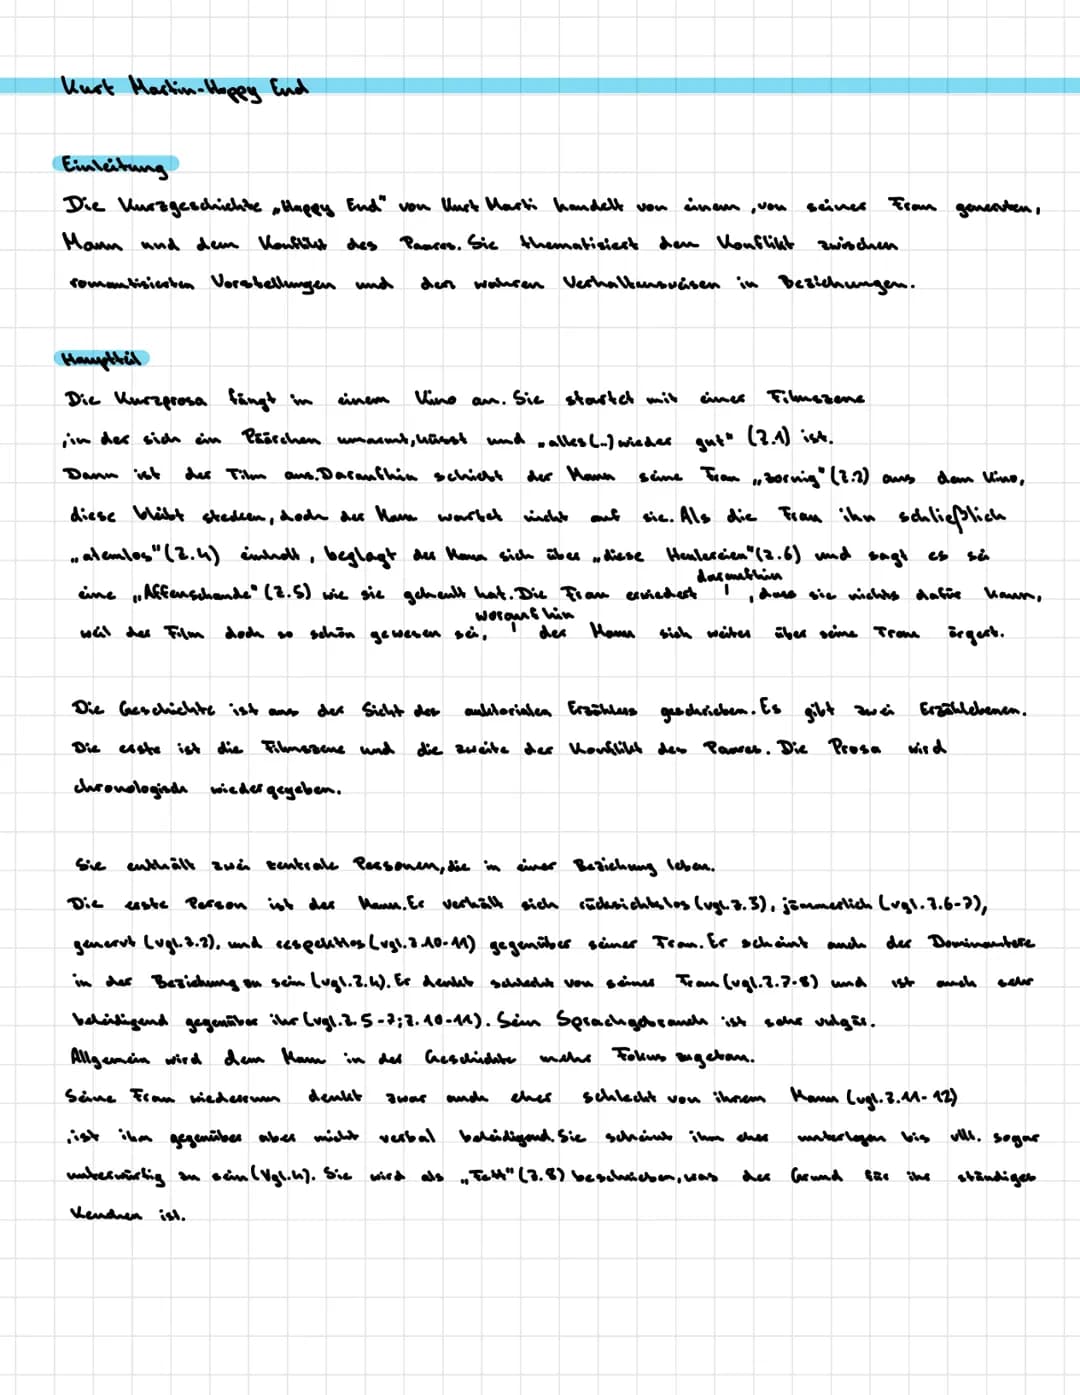 Kurt Martin-Happy End
Einleitung
Die Kurzgeschichte „Happy End" von Kurt Marti handelt von einem, von seiner Frau genervten,
Mann und dem Konflikt des Paares. Sie thematisiert den Konflikt zwischen
romantisierten Vorstellungen und den wahren Verhaltensweisen in Beziehungen.
Hauptteil
Die Kurzprosa fängt in einem Kino an. Sie startet mit einer Filmszene
, in der sich ein Päärchen umarmt, küsst und „alles (..) wieder gut" (Z.1) ist.
Dann ist der Film aus. Daraufhin schiebt der Mann seine Frau „zornig" (Z.2) aus dem Kino,
diese bleibt stecken, doch der Mann wartet nicht auf sie. Als die Frau ihn schließlich
„atemlos" (Z.4) einholt, beglagt der Mann sich über „diese Heulereien" (Z.6) und sagt es sei
eine „Affenschande" (Z.5) wie sie geheult hat. Die Frau erwiedert daraufhin, dass sie nichts dafür kann,
weil der Film doch so schön gewesen sei, woraufhin der Mann sich weiter über seine Frau ärgert.
Die Geschichte ist aus der Sicht des auktorialen Erzählers geschrieben. Es gibt zwei Erzählebenen.
Die erste ist die Filmszene und die zweite der Konflikt des Paares. Die Prosa wird
chronologisch wiedergegeben.
Sie enthält zwei zentrale Personen, die in einer Beziehung leben.
Die erste Person ist der Mann. Er verhält sich rücksichtslos (vgl. Z.3), jämmerlich (vgl. Z.6-7),
genervt (vgl. Z.2), und respektlos (vgl. Z.10-11) gegenüber seiner Frau. Er scheint auch der Dominantere
in der Beziehung zu sein (vgl. Z.4). Er denkt schlecht von seiner Frau (vgl. Z.7-8) und ist auch sehr
beleidigend gegenüber ihr (vgl. Z.5-7; Z.10-11). Sein Sprachgebrauch ist sehr vulgär.
Allgemein wird dem Mann in der Geschichte mehr Fokus zugetan.
Seine Frau wiederrum denkt zwar auch eher schlecht von ihrem Mann (vgl. Z.11-12)
, ist ihm gegenüber aber nicht verbal beleidigend. Sie scheint ihm eher unterlegen bis vllt. sogar
unterwürfig zu sein (Vgl. 4). Sie wird als „Fett" (Z.8) beschrieben, was der Grund für ihr ständiges
Keuchen ist.